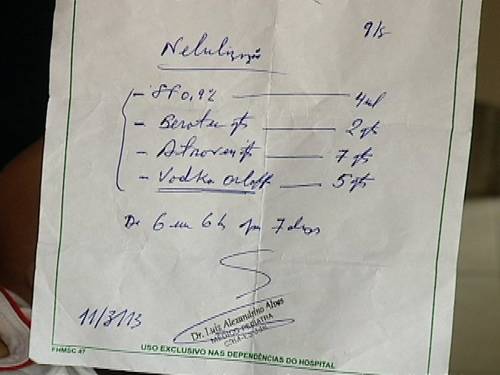 9/s
Nebulização
- SF 0,9% — 4ml
- Berotec gts — 2 gts
- Atrovent gts — 7 gts
- Vodka Orloff — 5 gts
De 6 em 6 h por 7 dias
11/3/13
Dr. Luis Alexandrino Alves
MÉDICO PEDIATRA
FHMSC 47
USO EXCLUSIVO NAS DEPENDÊNCIAS DO HOSPITAL